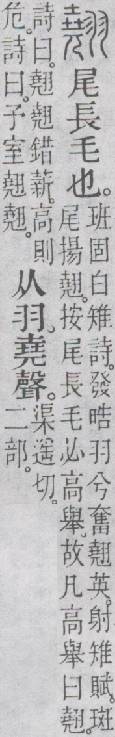 翹 尾長毛也。
班固白雉詩。發晧羽兮奮翹英。射雉賦。斑
尾揚翹。按尾長毛必高舉。故凡高舉曰翹。
詩曰。翹翹錯薪。高則
危。詩曰。予室翹翹。
从羽。堯聲。
渠遙切。
二部。